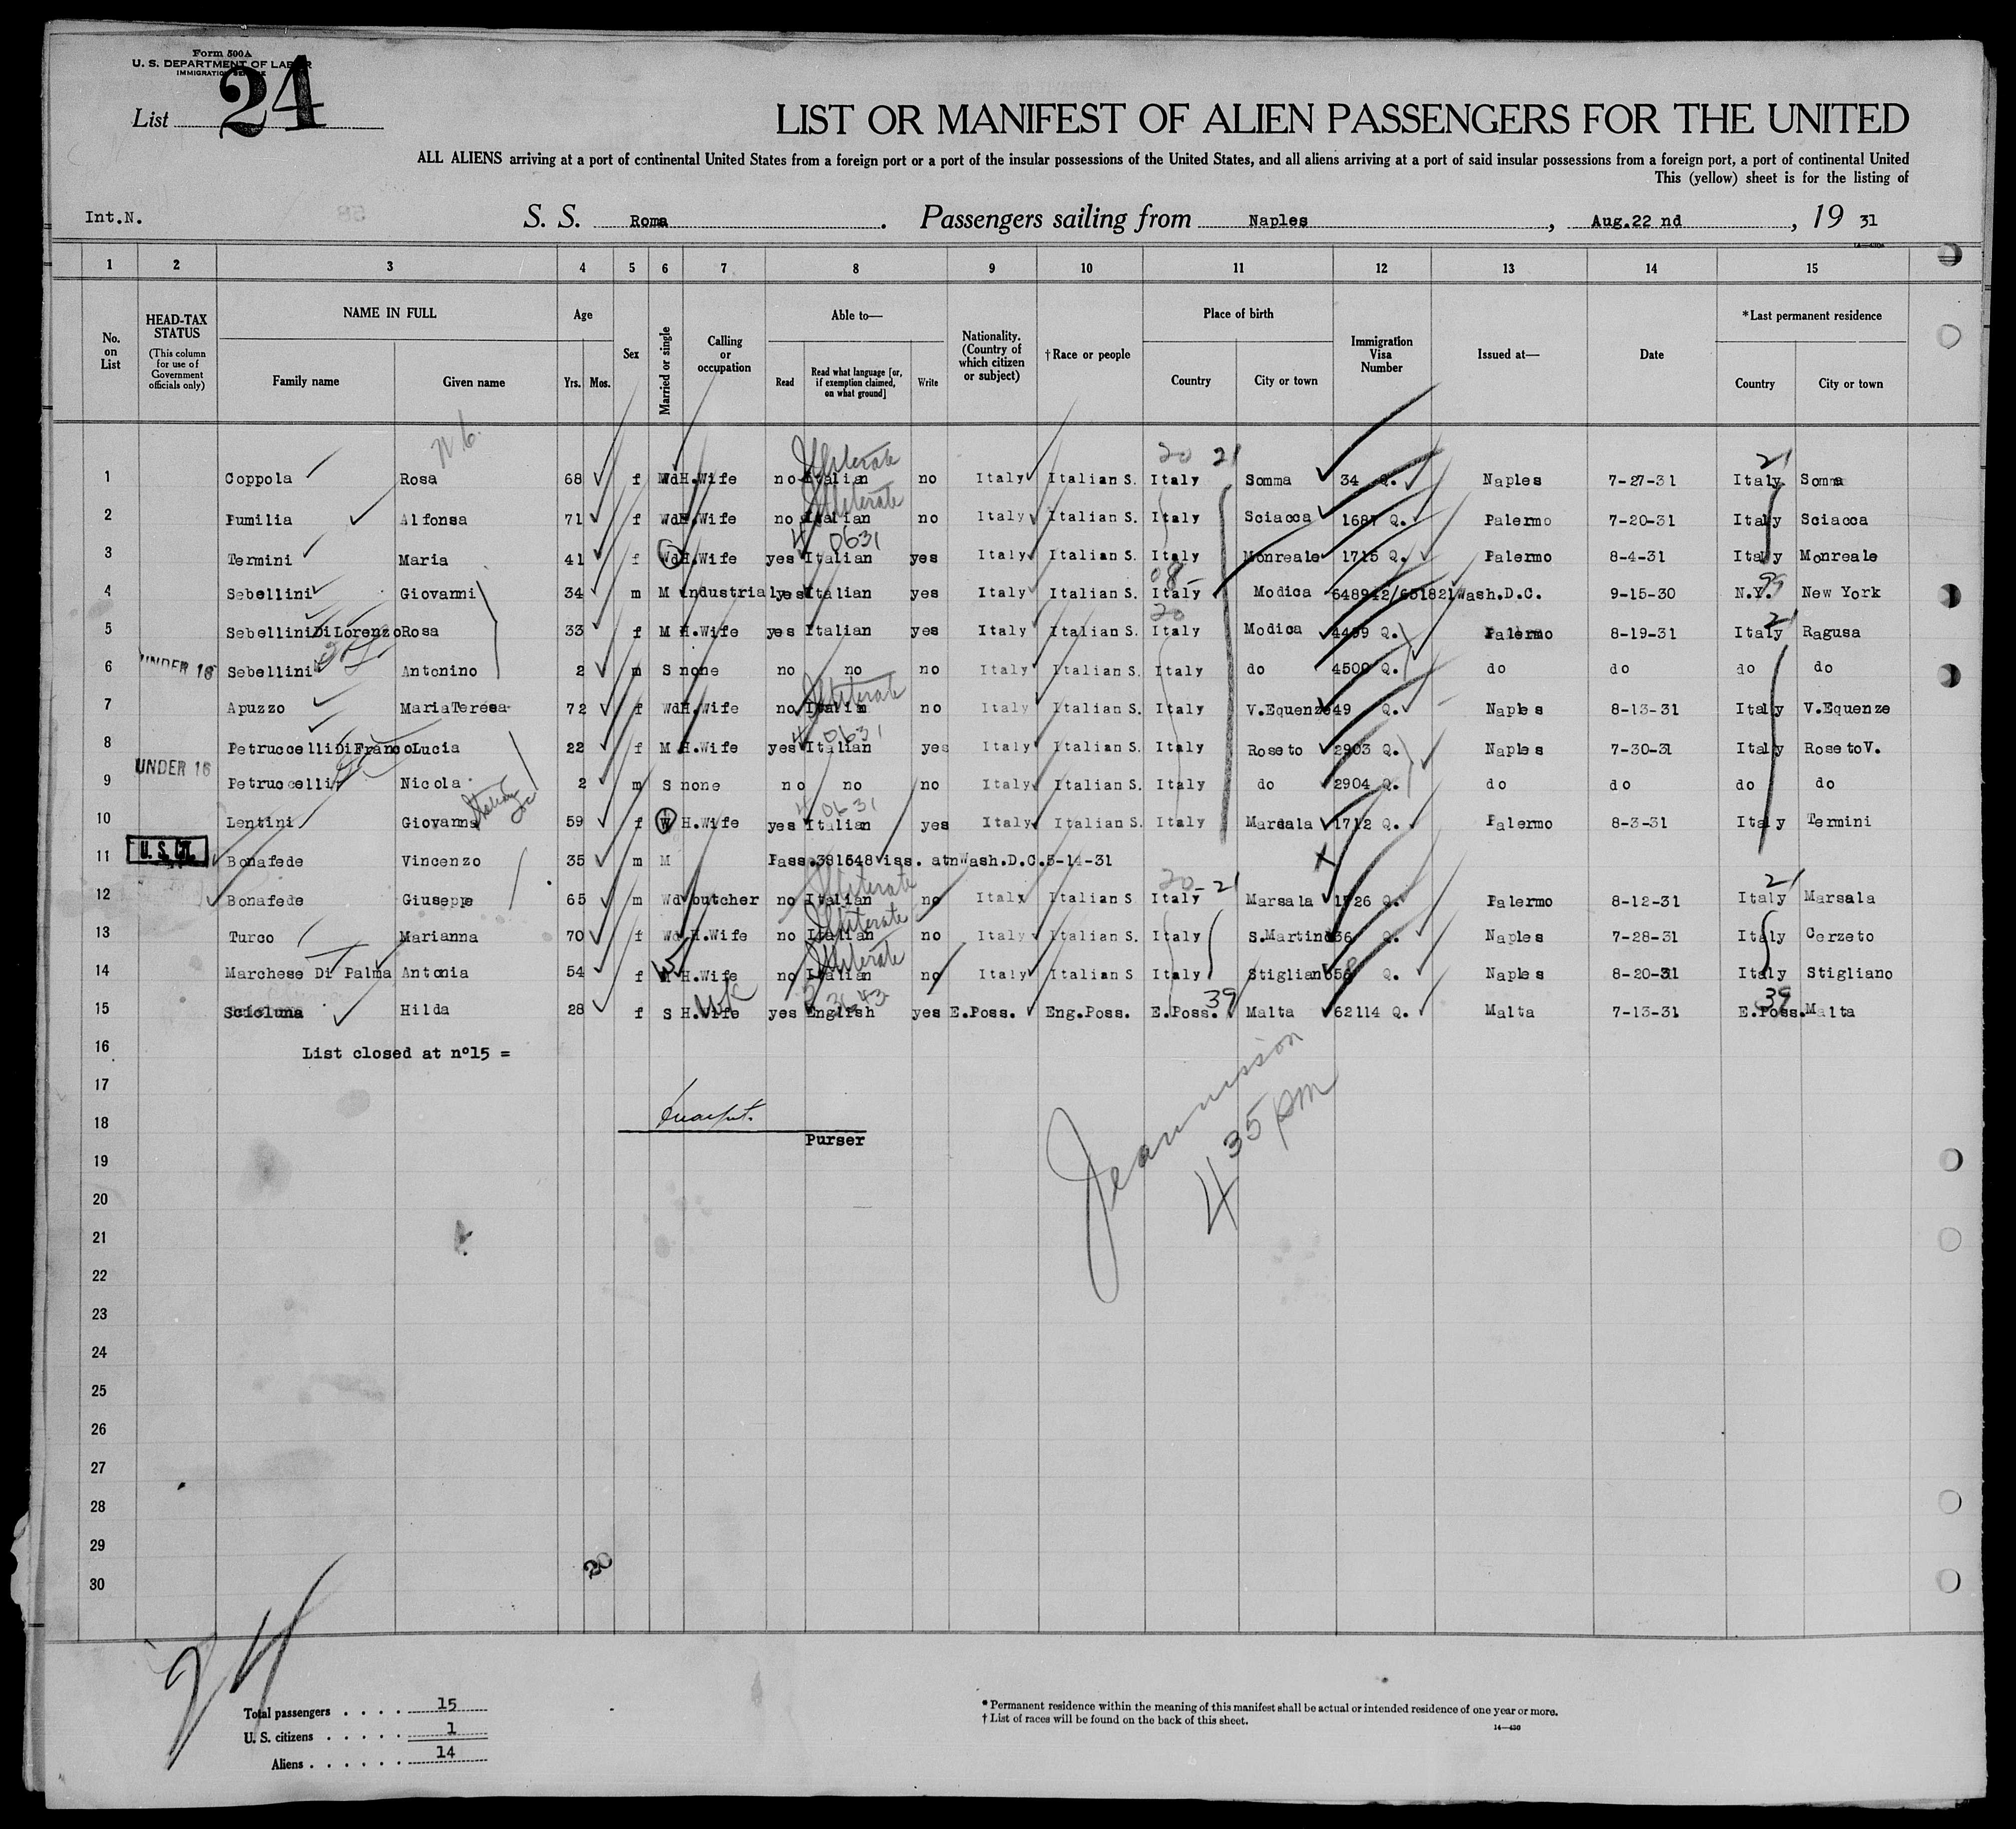 Form 500A
U. S. DEPARTMENT OF LABOR
IMMIGRATION SERVICE
List 24
LIST OR MANIFEST OF ALIEN PASSENGERS FOR THE UNITED
ALL ALIENS arriving at a port of continental United States from a foreign port or a port of the insular possessions of the United States, and all aliens arriving at a port of said insular possessions from a foreign port, a port of continental United
This (yellow) sheet is for the listing of
Int.N. S. S. Roma. Passengers sailing from Naples, Aug.22 nd, 19 31
1 2 3 4 5 6 7 8 9 10 11 12 13 14 15
No. on List
HEAD-TAX STATUS (This column for use of Government officials only)
NAME IN FULL Family name Given name
Age Yrs. Mos.
Sex
Married or single
Calling or occupation
Able to— Read Read what language [or, if exemption claimed, on what ground] Write
Nationality. (Country of which citizen or subject)
†Race or people
Place of birth Country City or town
Immigration Visa Number
Issued at—
Date
*Last permanent residence Country City or town
N.C.
Illiterate 20 21 21
1 Coppola Rosa 68 f Wd H.Wife no Italian no Italy Italian S. Italy Somma 34 Q. Naples 7-27-31 Italy Somma
Illiterate
2 Fumilia Alfonsa 71 f Wd H.Wife no Italian no Italy Italian S. Italy Sciacca 1687 Q. Palermo 7-20-31 Italy Sciacca
4 0631
3 Termini Maria 41 f Wd H.Wife yes Italian yes Italy Italian S. Italy Monreale 1715 Q. Palermo 8-4-31 Italy Monreale
08- 99
4 Sebellini Giovanni 34 m M industrial yes Italian yes Italy Italian S. Italy Modica 648942/631821 Wash.D.C. 9-15-30 N.Y. New York
20 21
5 Sebellini DiLorenzo Rosa 33 f M H.Wife yes Italian yes Italy Italian S. Italy Modica 4499 Q. Palermo 8-19-31 Italy Ragusa
6 UNDER 16 Sebellini Antonino 2 m S none no no no Italy Italian S. Italy do 4500 Q. do do do do
Illiterate
7 Apuzzo MariaTeresa 72 f Wd H.Wife no Italian no Italy Italian S. Italy V.Equenze 49 Q. Naples 8-13-31 Italy V.Equenze
4 0631
8 Petruccelli DiFranco Lucia 22 f M H.Wife yes Italian yes Italy Italian S. Italy Roseto 2903 Q. Naples 7-30-31 Italy RosetoV.
9 UNDER 16 Petruccelli Nicola 2 m S none no no no Italy Italian S. Italy do 2904 Q. do do do do
4 0631
10 Lentini Giovanna 59 f W H.Wife yes Italian yes Italy Italian S. Italy Marsala 1712 Q. Palermo 8-3-31 Italy Termini
11 U.S. CIT. Bonafede Vincenzo 35 m M Pass.381648 iss. atnWash.D.C.5-14-31
Illiterate 20-21 21
12 Bonafede Giuseppe 65 m Wd butcher no Italian no Italy Italian S Italy Marsala 1726 Q. Palermo 8-12-31 Italy Marsala
Illiterate
13 Turco Marianna 70 f Wd H.Wife no Italian no Italy Italian S. Italy S.Martino 36 Q. Naples 7-28-31 Italy Cerzeto
Illiterate
14 Marchese Di Palma Antonia 54 f H.Wife no Italian no Italy Italian S Italy Stigliano 56 Q. Naples 8-20-31 Italy Stigliano
39 39
15 Scicluna Hilda 28 f S H.Wife yes English yes E.Poss. Eng.Poss. E.Poss. Malta 62114 Q. Malta 7-13-31 E.Poss. Malta
16 List closed at nº15 =
17
18
Purser
4 35 pm
19
20
21
22
23
24
25
26
27
28
29
30
20
24
Total passengers . . . . 15
U. S. citizens . . . . . 1
Aliens . . . . . . 14
* Permanent residence within the meaning of this manifest shall be actual or intended residence of one year or more.
† List of races will be found on the back of this sheet.
14—430